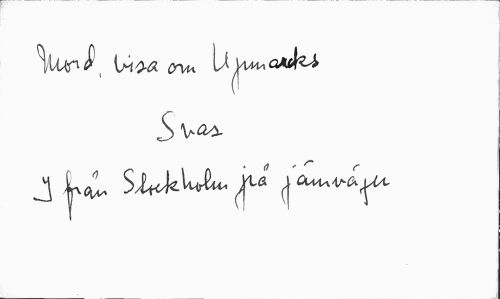 Mord, visa om Upmarks
Svas
I från Stockholm på järnvägen